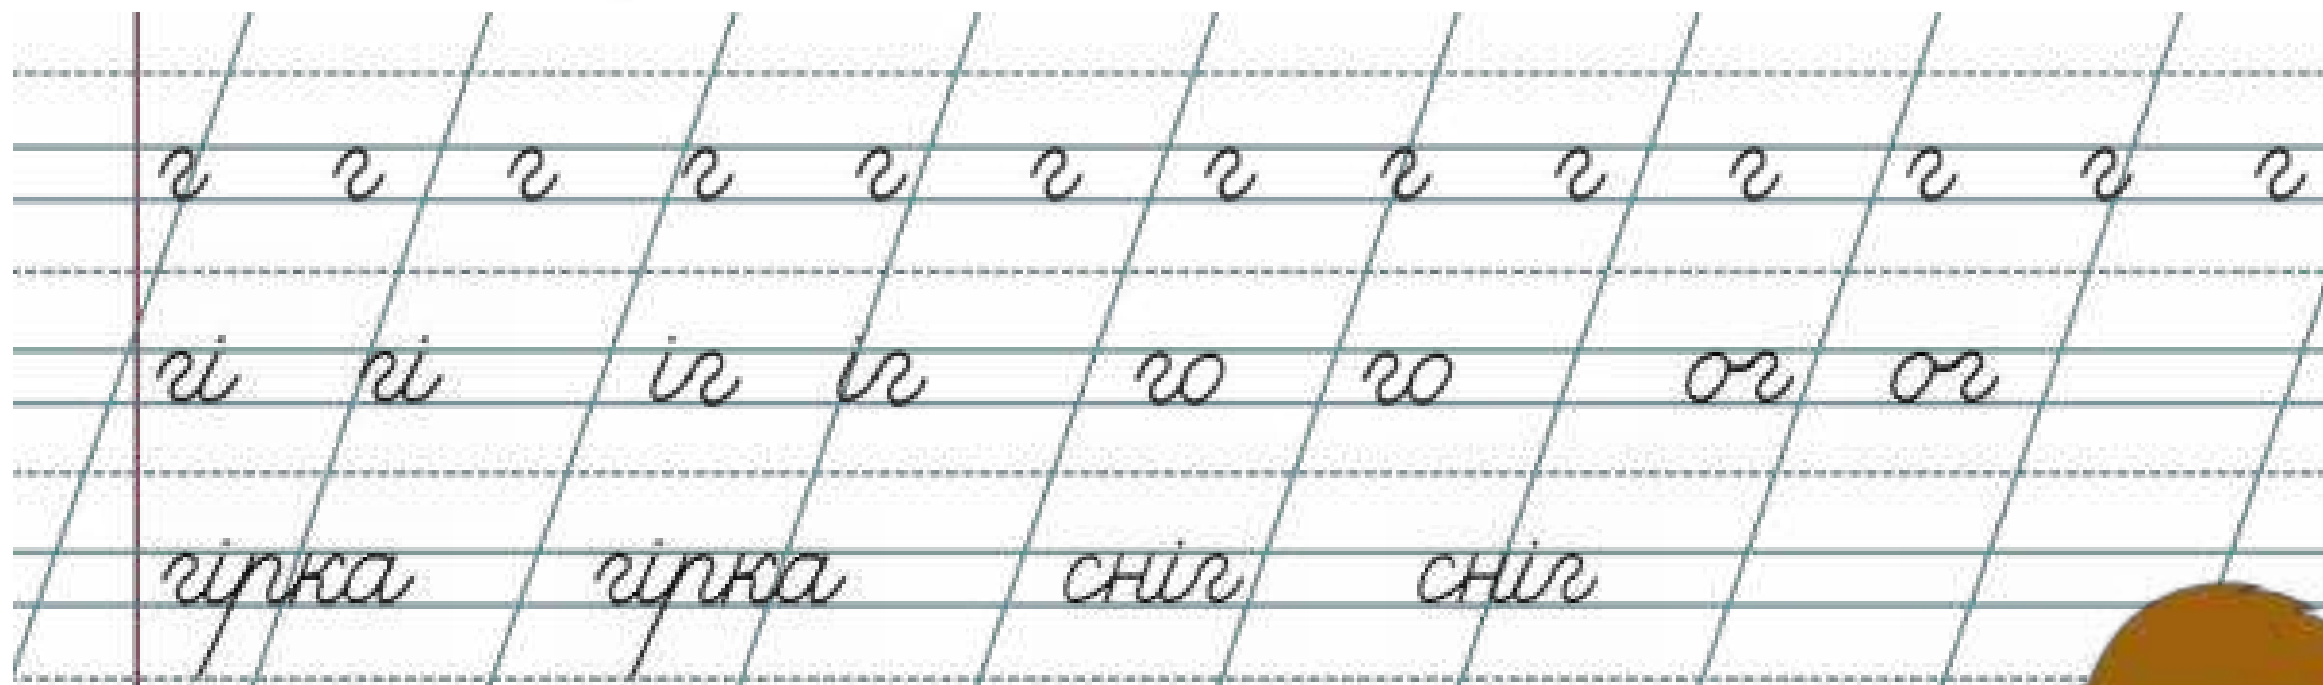 г г г г г г г г г г г г г
гі гі іг іг го го ог ог
гірка гірка сніг сніг